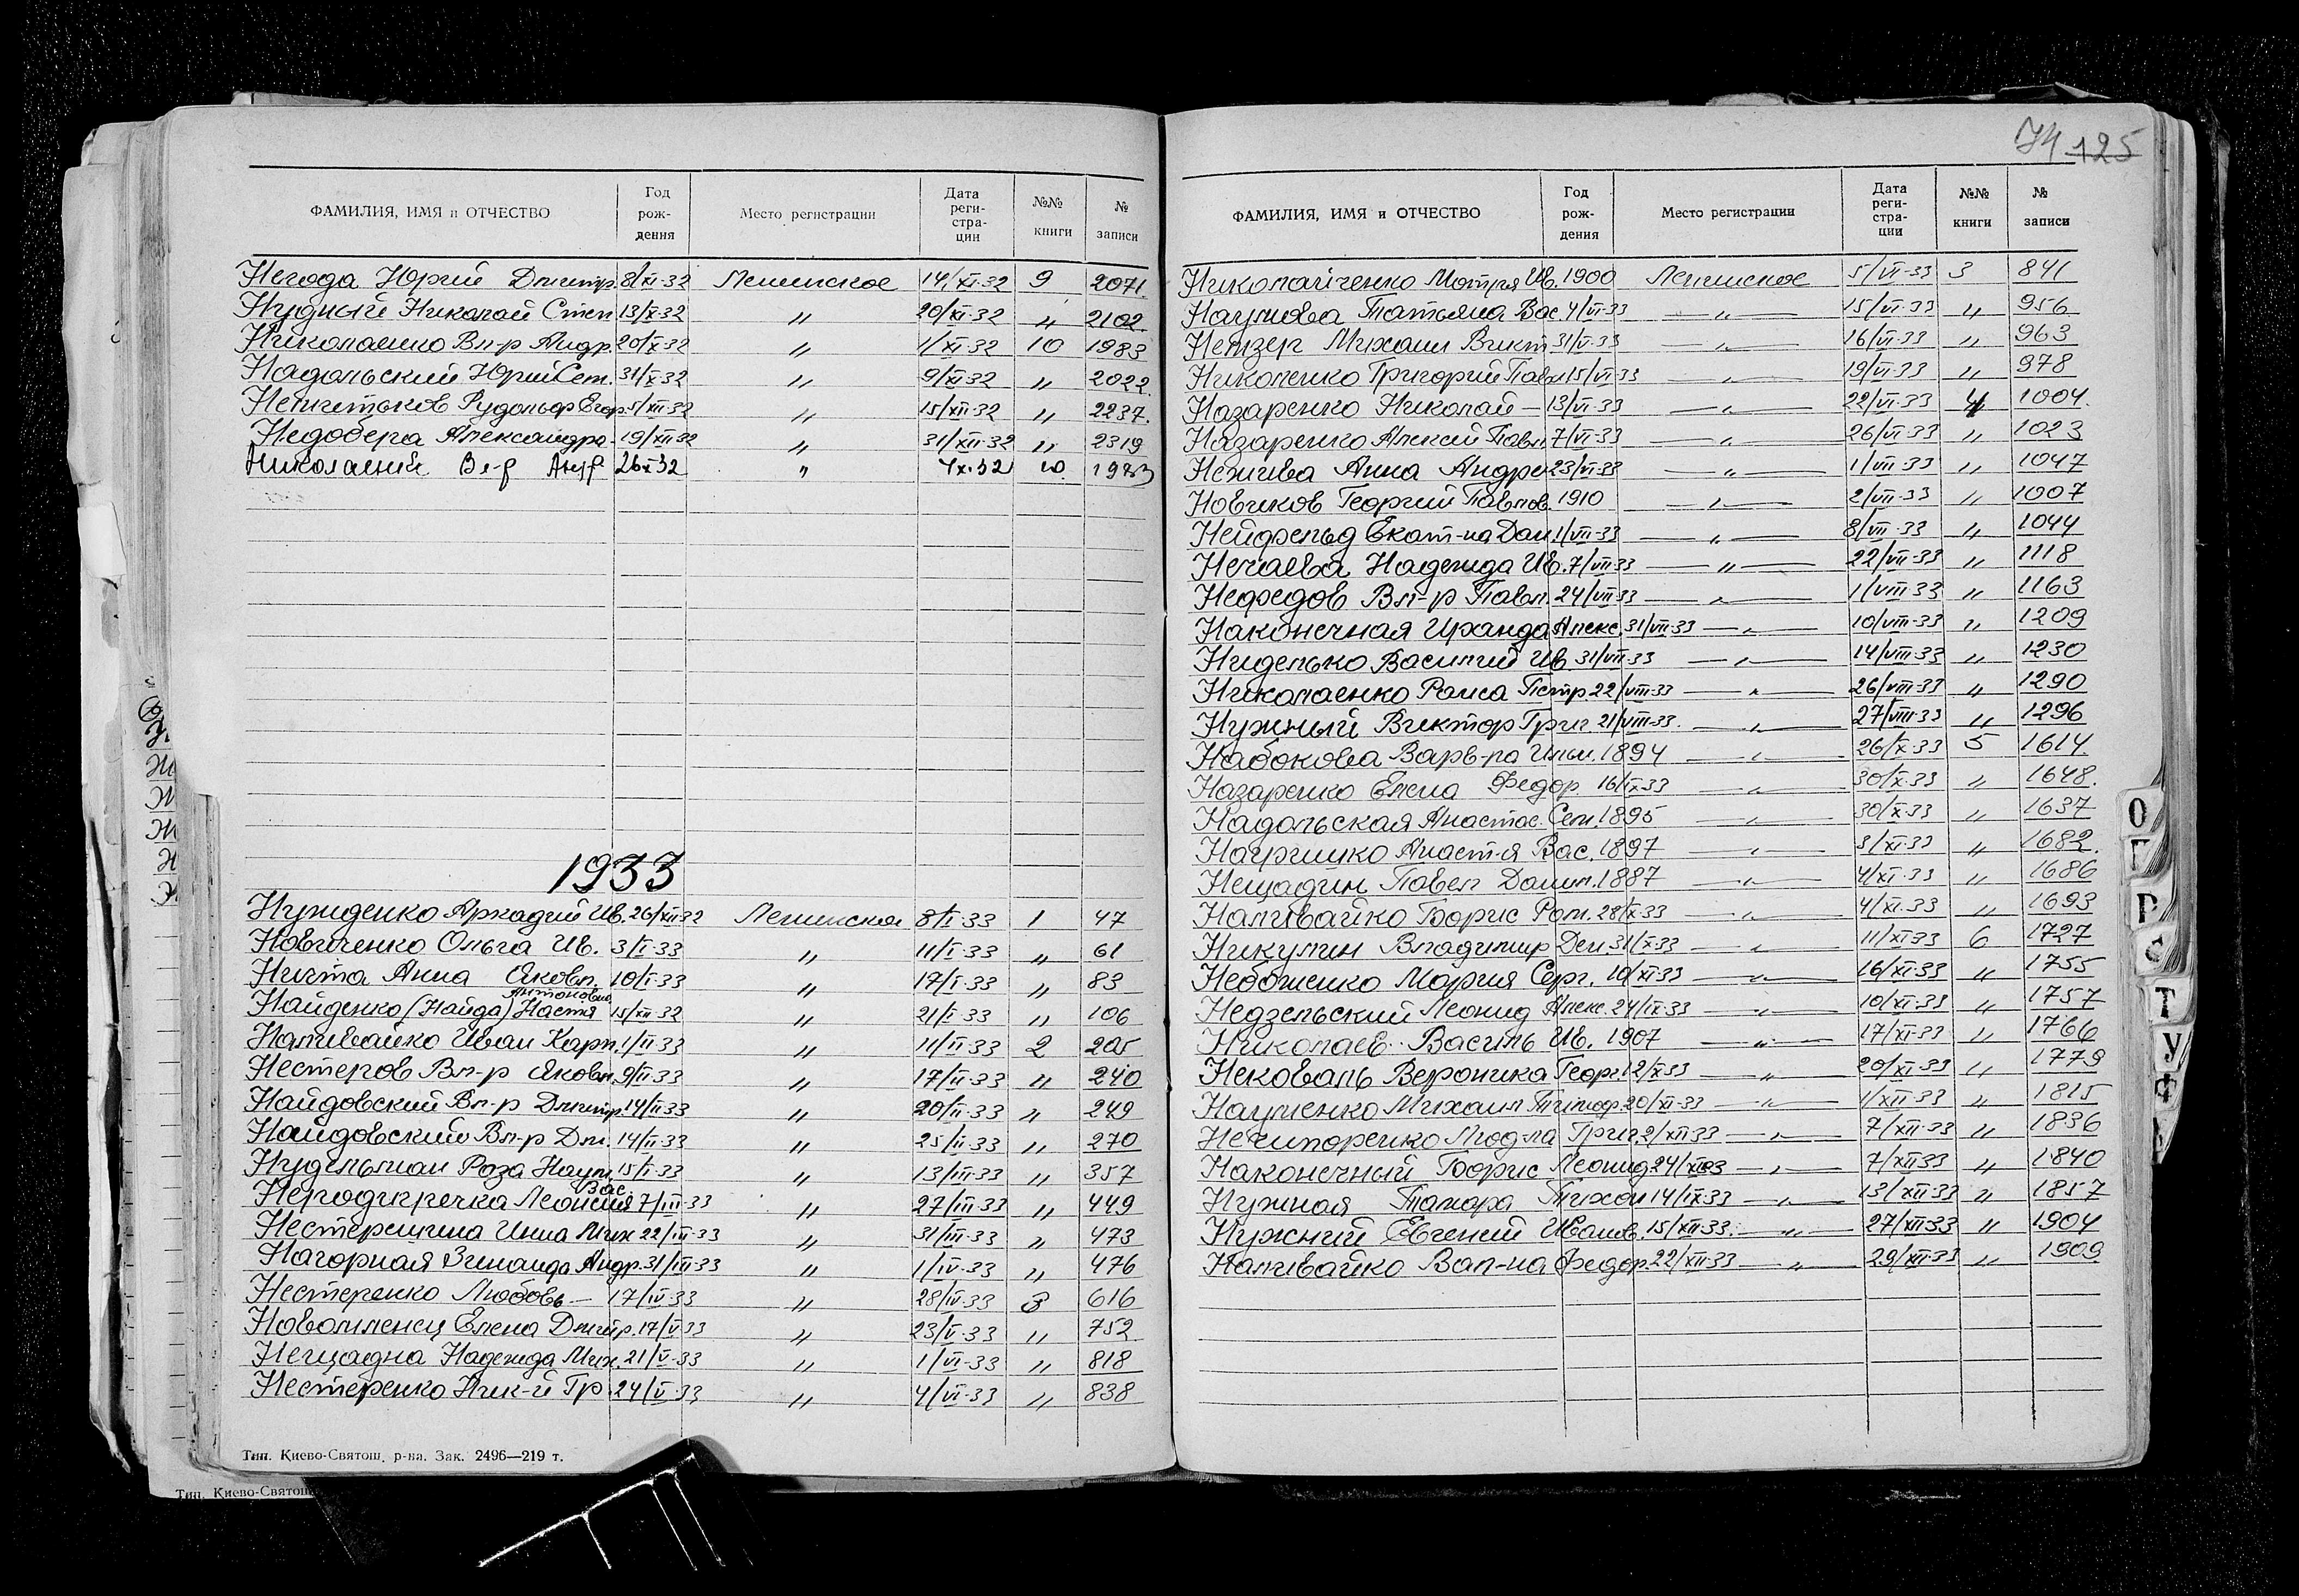 ФАМИЛИЯ, ИМЯ и ОТЧЕСТВО Год рож-дения Место регистрации Дата реги-стра-ции №№ книги № записи
Негода Юрий Дмитр. 8/XI-32 Ленинское 14/XI-32 9 2071
Нудный Николай Степ 13/X-32 " 20/XI-32 " 2102
Николаенко Вл-р Андр. 20/X-32 " 1/XI-32 10 1983
Надольский Юрий Сем. 31/X-32 " 9/XI-32 " 2022
Рудольф Егор. 5/XII-32 " 15/XII-32 " 2237
Недобега Александра 19/XII-32 " 31/XII-32 " 2319
Вл-р Андр 26 32 " 32 10 1983
1933
Нужденко Аркадий Ив. 26/XII-32 Ленинское 8/I-33 1 47
Новиченко Ольга Ив. 3/I-33 " 11/I-33 " 61
Ничта Анна Яковл. 10/I-33 " 17/I-33 " 83
Антоновна
Найденко (Найда) Настя 15/XII-32 " 21/I-33 " 106
Наливайко Иван Карп. 1/II-33 " 11/II-33 2 205
Нестеров Вл-р Яковл. 9/II-33 " 17/II-33 " 240
Найдовский Вл-р Дмитр. 14/II-33 " 20/II-33 " 249
Найдовский Вл-р Дм. 14/II-33 " 25/II-33 " 270
Нудельман Роза Наум. 15/I-33 " 13/III-33 " 357
Вас.
Неродигречка 7/III-33 " 27/III-33 " 449
Нестершина Инна Мих 22/III-33 " 31/III-33 " 473
Нагорная Зинаида Андр. 31/III-33 " 1/IV-33 " 476
Нестеренко Любовь — 17/IV-33 " 28/IV-33 3 616
Новомленец Елена Дмитр. 17/V-33 " 23/V-33 " 752
Нещадна Надежда Мих. 21/V-33 " 1/VI-33 " 818
Нестеренко Ник-й Гр. 24/V-33 " 4/VI-33 " 838
Тип. Киево-Святош. р-на. Зак. 2496—219 т.
Тип. Киево-Святош
74 125
ФАМИЛИЯ, ИМЯ и ОТЧЕСТВО Год рож-дения Место регистрации Дата реги-стра-ции №№ книги № записи
Николайченко Мотря Ив. 1900 Ленинское 5/VI-33 3 841
Наумова Татьяна Вас. 4/VI-33 — " — 15/VI-33 " 956
Михаил Викт 31/V-33 — " — 16/VI-33 " 963
Николенко Григорий Павл 15/VI-33 — " — 19/VI-33 " 978
Назаренко Николай — 13/VI-33 — " — 22/VI-33 4 1004
Назаренко Алексей Павл. 7/VI-33 — " — 26/VI-33 " 1023
Нежива Анна Андре 23/VI-33 — " — 1/VII-33 " 1047
Новиков Георгий Павлов. 1910 — " — 2/VII-33 " 1007
Нейфельд Екат-на Дан 1/VII-33 — " — 8/VII-33 " 1044
Нечаева Надежда Ив. 7/VII-33 — " — 22/VII-33 " 1118
Нефедов Вл-р Павл. 24/VII-33 — " — 1/VIII-33 " 1163
Наконечная Алекс. 31/VII-33 — " — 10/VIII-33 " 1209
Ниделько Василий Ив. 31/VII-33 — " — 14/VIII-33 " 1230
Николаенко Раиса Петр. 22/VIII-33 — " — 26/VIII-33 " 1290
Нужный Виктор Григ. 21/VIII-33. — " — 27/VIII-33 " 1296
Набокова Варв-ра Ильи. 1894 — " — 26/X-33 5 1614
Назаренко Елена Федор. 16/IX-33 — " — 30/X-33 " 1648
Надольская Анастас. Сем. 1895 — " — 30/X-33 " 1637
Анаст-я Вас. 1897 — " — 3/XI-33 " 1682
Нещадин Павел Данил. 1887 — " — 4/XI-33 " 1686
Наливайко Борис Ром. 28/X-33 — " — 4/XI-33 " 1693
Никулин Владимир Дем. 31/X-33 — " — 11/XI-33 6 1727
Небоженко Мария Серг. 10/XI-33 — " — 16/XI-33 " 1755
Недзельский Леонид Алекс. 24/IX-33 — " — 10/XI-33 " 1757
Николаев Василь Ив. 1907 — " — 17/XI-33 " 1766
Нековаль Вероника Георг. 12/X-33 — " — 20/XI-33 " 1779
Науменко Михаил Тимоф. 20/XI-33 — " — 1/XII-33 " 1815
Нечипоренко Людмла Григ. 2/XII-33 — " — 7/XII-33 " 1836
Наконечный Борис Леонид 24/XI-33 — " — 7/XII-33 " 1840
Нужная Тамара Тихон 14/IX-33 — " — 13/XII-33 " 1857
Нужний Евгений Иванов. 15/XII-33. — " — 27/XII-33 " 1904
Наливайко Вал-на Федор. 22/XII-33 — " — 29/XII-33 " 1909
О
П
Р
С
Т
У
Ф